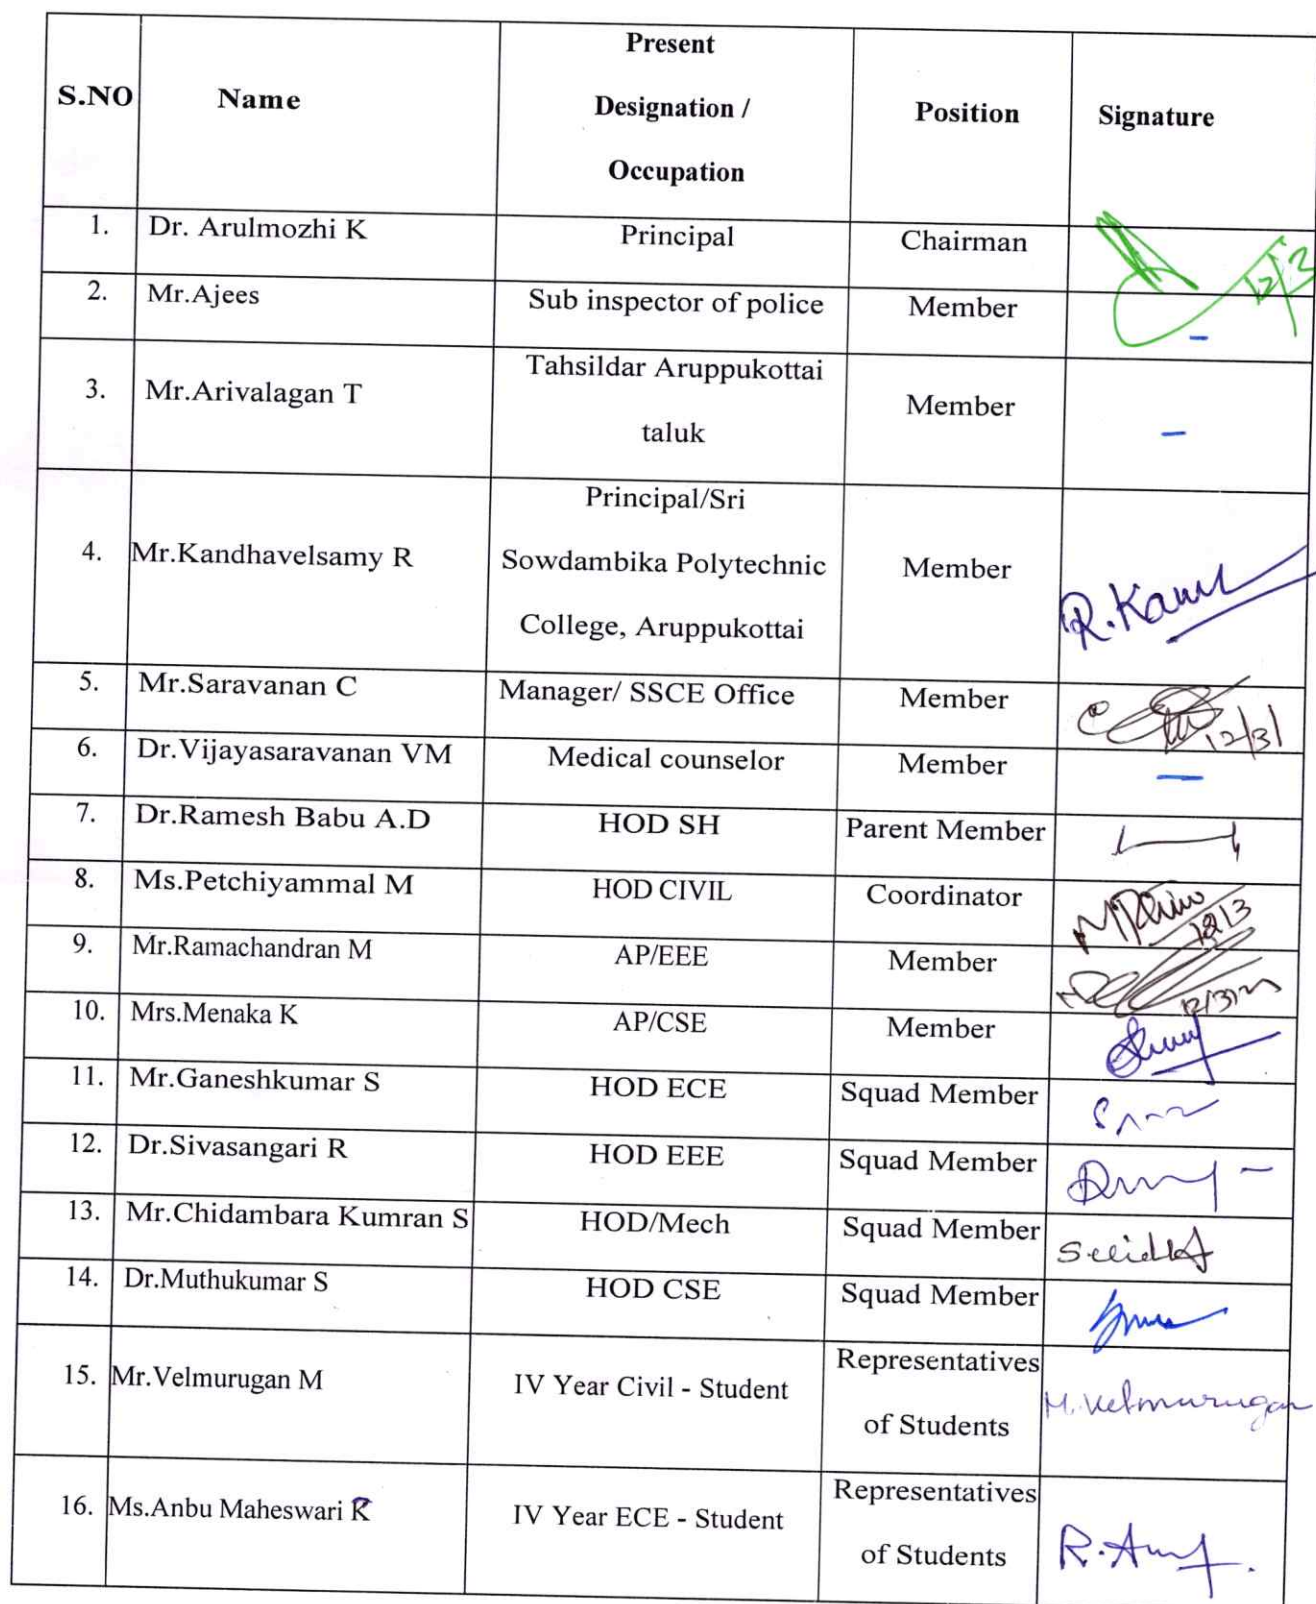 S.NO Name Present Designation / Occupation Position Signature
1. Dr. Arulmozhi K Principal Chairman 12/3
2. Mr.Ajees Sub inspector of police Member -
3. Mr.Arivalagan T Tahsildar Aruppukottai
taluk Member -
4. Mr.Kandhavelsamy R Principal/Sri
Sowdambika Polytechnic
College, Aruppukottai Member
5. Mr.Saravanan C Manager/ SSCE Office Member 12/3/
6. Dr.Vijayasaravanan VM Medical counselor Member -
7. Dr.Ramesh Babu A.D HOD SH Parent Member
8. Ms.Petchiyammal M HOD CIVIL Coordinator 12/3
9. Mr.Ramachandran M AP/EEE Member
10. Mrs.Menaka K AP/CSE Member
11. Mr.Ganeshkumar S HOD ECE Squad Member
12. Dr.Sivasangari R HOD EEE Squad Member
13. Mr.Chidambara Kumran S HOD/Mech Squad Member
14. Dr.Muthukumar S HOD CSE Squad Member
15. Mr.Velmurugan M IV Year Civil - Student Representatives
of Students M. Velmurugan
16. Ms.Anbu Maheswari R IV Year ECE - Student Representatives
of Students